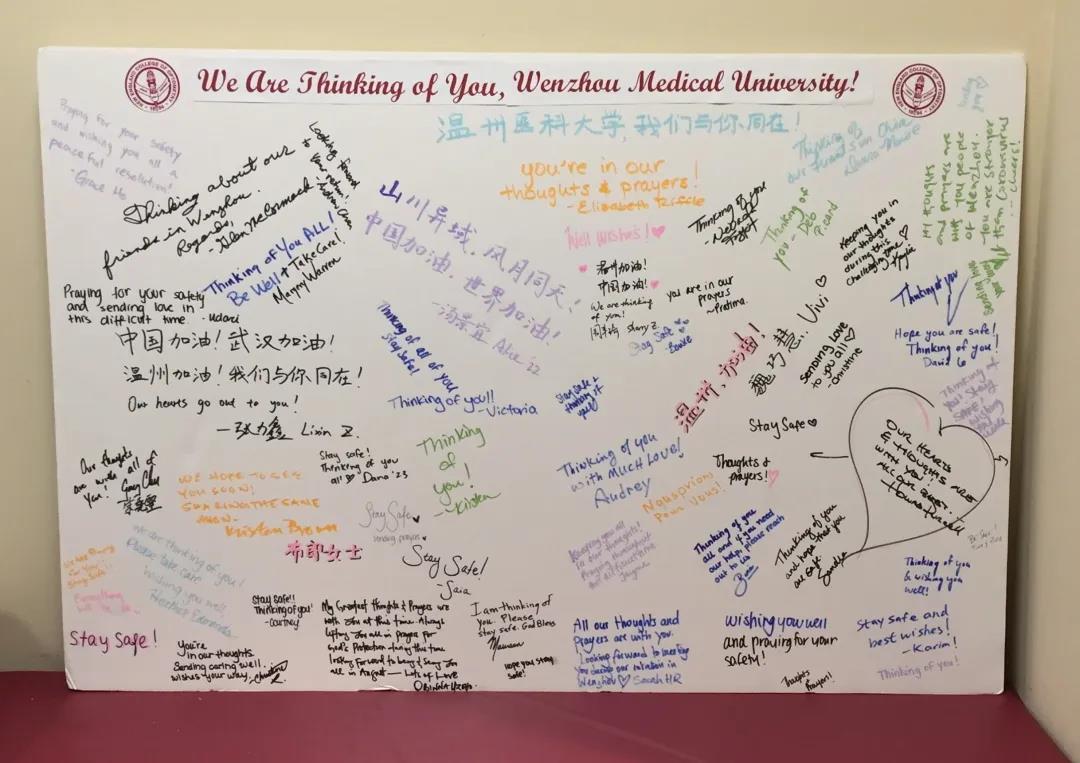 We Are Thinking of You, Wenzhou Medical University!
温州医科大学,我们与你同在!
Praying for your safety
and wishing you all a
peaceful resolution!
Thinking about our
friends in Wenzhou.
Regards,
Looking forward
Thinking of You ALL!
Be Well + Take Care!
Manny Warren
山川异域,风月同天!
中国加油,世界加油!
you're in our
thoughts & prayers!
- Elizabeth
Thinking of
our friends in China
Thinking of you
Thinking of
you.
Deb
Picard
Keeping you in
our thoughts
during this
challenging time
Well wishes!
温州加油!
中国加油!
We are thinking
of you!
Stay Safe
you are in our
prayers
- Pretima
温州,加油!
Vivi
Sending love
to you all
Christine
Thinking of you
Hope you are safe!
Thinking of you!
David
Praying for your safety
and sending love in
this difficult time.
中国加油!武汉加油!
温州加油!我们与你同在!
Our hearts go out to you!
— 张力鑫 Lixin Z.
Thinking of all of you
Stay Safe!
Thinking of you!!
- Victoria
Stay Safe +
thinking of
you!
Stay Safe
Thinking of
you! Stay
SAFE!
OUR HEARTS
& THOUGHTS ARE
WITH YOU.
ALL OUR BEST.
Our thoughts
are with all of
you!
WE HOPE TO SEE
YOU SOON!
SHARING THE SAME
MOON.
Kristen Brown
布郎女士
Stay safe!
Thinking of you
all Dana '23
Thinking
of
you!
- Kristen
Stay Safe
Sending prayers
Stay Safe!
- Saia
Thinking of you
with MUCH LOVE!
Audrey
Thoughts &
prayers!
Thinking of you
all and if you need
our help, please reach
out to us
Thinking of you
and hope that you
are safe.
Sandra
Keeping you all
in our thoughts
Thinking of you
& wishing you
well!
We are thinking of you!
Please take care
wishing you well
Heather Edmonds
Everything
will be
Stay Safe!
You're
in our thoughts.
Sending caring well
wishes your way,
Stay Safe!!
Thinking of you!
- Courtney
My Greatest thoughts & Prayers are
with you at this time. Always
lifting you all in prayer for
God's Protection during this time
looking forward to being & seeing you
all in August — Lots of Love
I am thinking of
you. Please
stay safe. God Bless
Maureen
hope you stay
safe!
All our thoughts and
prayers are with you.
Looking forward to meeting
you during our rotation in
Wenzhou Sarah HR
wishing you well
and praying for your
safety!
Thoughts
Prayers!!
Stay safe and
best wishes!
- Karim!
Thinking of you!